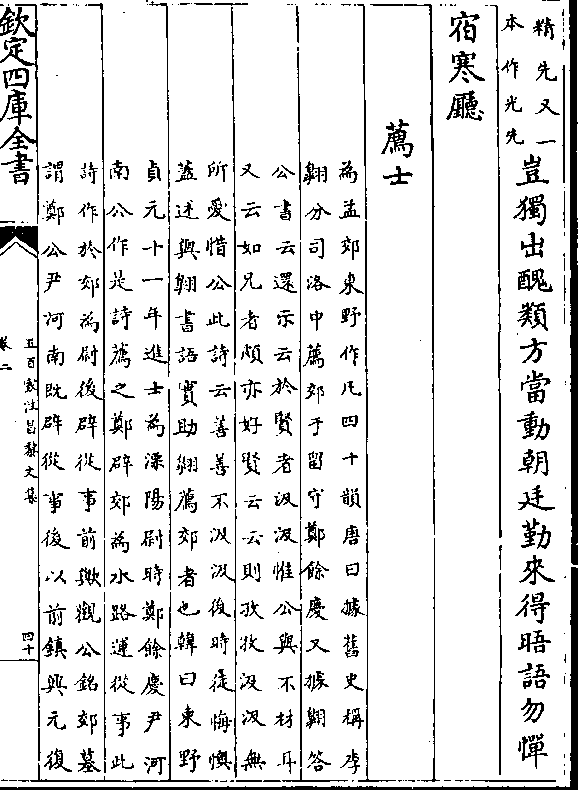 精先又一
本作光先
豈獨出醜類方當動朝廷勤來得晤語勿憚
宿寒廳
薦士
為孟郊東野作凡四十韻唐曰據舊史稱李
翺分司洛中薦郊于留守鄭餘慶又據翺答
公書云還示云於賢者汲汲惟公與不材耳
又云如兄者頗亦好賢云云則孜孜汲汲無
所愛惜公此詩云善善不汲汲後時徒悔懊
蓋述與翺書語實助翺薦郊者也韓曰東野
貞元十一年進士為溧陽尉時鄭餘慶尹河
南公作是詩薦之鄭辟郊為水路運從事此
詩作於郊為尉後辟從事前歟觀公銘郊墓
謂鄭公尹河南既辟從事後以前鎮興元復
欽定四庫全書
卷二
五百家注昌黎文集
四十